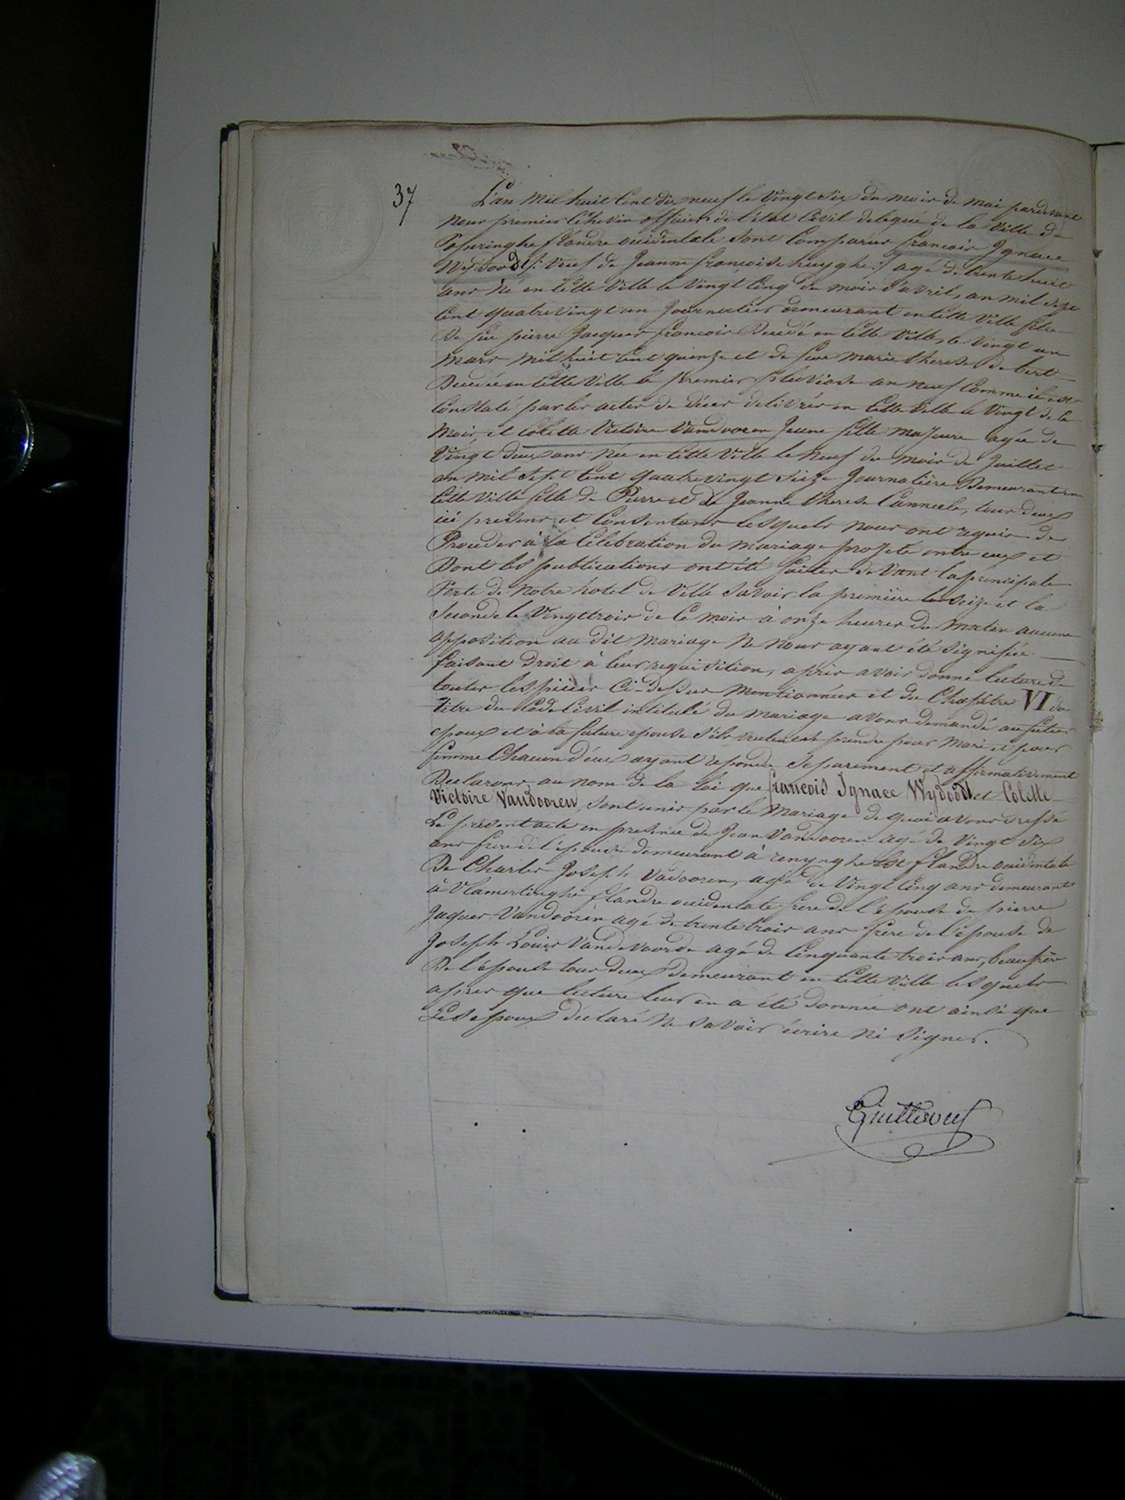 37
L'an mil huit Cent dix neuf le vingt Six du mois de mai pardevant
nous premier Echevin officier de l'Etat Civil delegué de la Ville de
Poperinghe flandre occidentale Sont Comparus francois Ignace
Wydoodt veuf de Jeanne françoise huyghe agé de trente huit
ans né en Cette Ville le vingt Cinq du mois d'avril, an mil Sept
Cent quatre vingt un Journalier demeurant en Cette Ville fils
de feu pierre Jacques francois decedé en Cette Ville, le vingt un
mars mil huit Cent quinze et de feue marie therese de
decedée en Cette Ville le premier pluviose an neuf Comme il est
Constaté par les actes de décès délivrés en Cette Ville le Vingt de Ce
mois, et Colette Victoire Vandooren Jeune fille majeure agée de
Vingt deux ans née en Cette Ville le neuf du mois de Juillet
an mil Sept Cent quatre vingt Seize Journalière demeurant en
Cette Ville fille de Pierre et de Jeanne therese Canneele, tous deux
ici presens et Consentans lesquels nous ont requis de
Proceder à la Célébration du mariage projeté entre eux et
dont les publications ont été faites devant la principale
Porte de notre hotel de Ville Savoir la première le Seize et la
Seconde le Vingttrois de Ce mois à onze heures du matin aucune
opposition au dit mariage ne nous ayant été signifiée
faisant droit à leur requisition, après avoir donné lecture de
toutes les pièces Ci-dessus mentionnées et du Chapitre VI du
titre du Code Civil intitulé du mariage avons demandé au futur
epoux et à la future epouse S'ils veulent se prendre pour Mari et pour
femme Chacun d'eux ayant répondu Separement et affirmativement
Declarons au nom de la loi que francois Ignace Wydoodt et Colette
Victoire Vandooren Sont unis par le Mariage de quoi avons dressé
Le présent acte en presence de Jean Vandooren agé de Vingt Six
ans frere de l'epouse demeurant à renynghelst flandre occidentale
De Charles Joseph Vadooren, agé de Vingt Cinq ans demeurant
à Vlamertinghe flandre occidentale frere de l'epouse de pierre
Jaques Vandooren agé de trente trois ans frere de l'épouse de
Joseph Louis Vandevoorde agé de Cinquante trois ans, beaufrère
De l'épouse tous deux demeurant en Cette Ville lesquels
après que lecture leur en a été donnée ont ainsi que
Les epoux declaré ne savoir écrire ni signer.